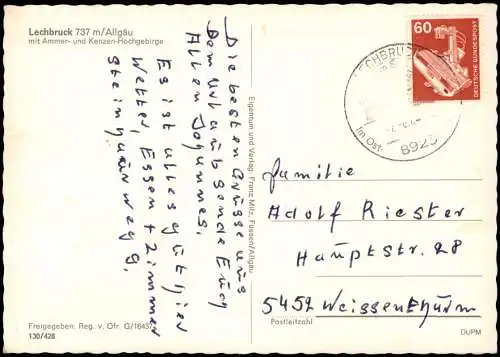 Lechbruck 737 m/Allgäu
mit Ammer- und Kenzen-Hochgebirge
Die besten Grüsse aus
Dem Urlaub sende Euch
Allen Johannes.
Es ist alles gut hier
Wetter, Essen + Zimmer
Steingäuweg 9.
Eigentum und Verlag: Franz Milz, Füssen/Allgäu
Freigegeben: Reg. v. Ofr. G/16437
130/428
60
DEUTSCHE BUNDESPOST
LECHBRUCK
im Ost-
8923
Familie
Adolf Riester
Hauptstr. 28
5452 Weissenthurm
Postleitzahl
DUPM